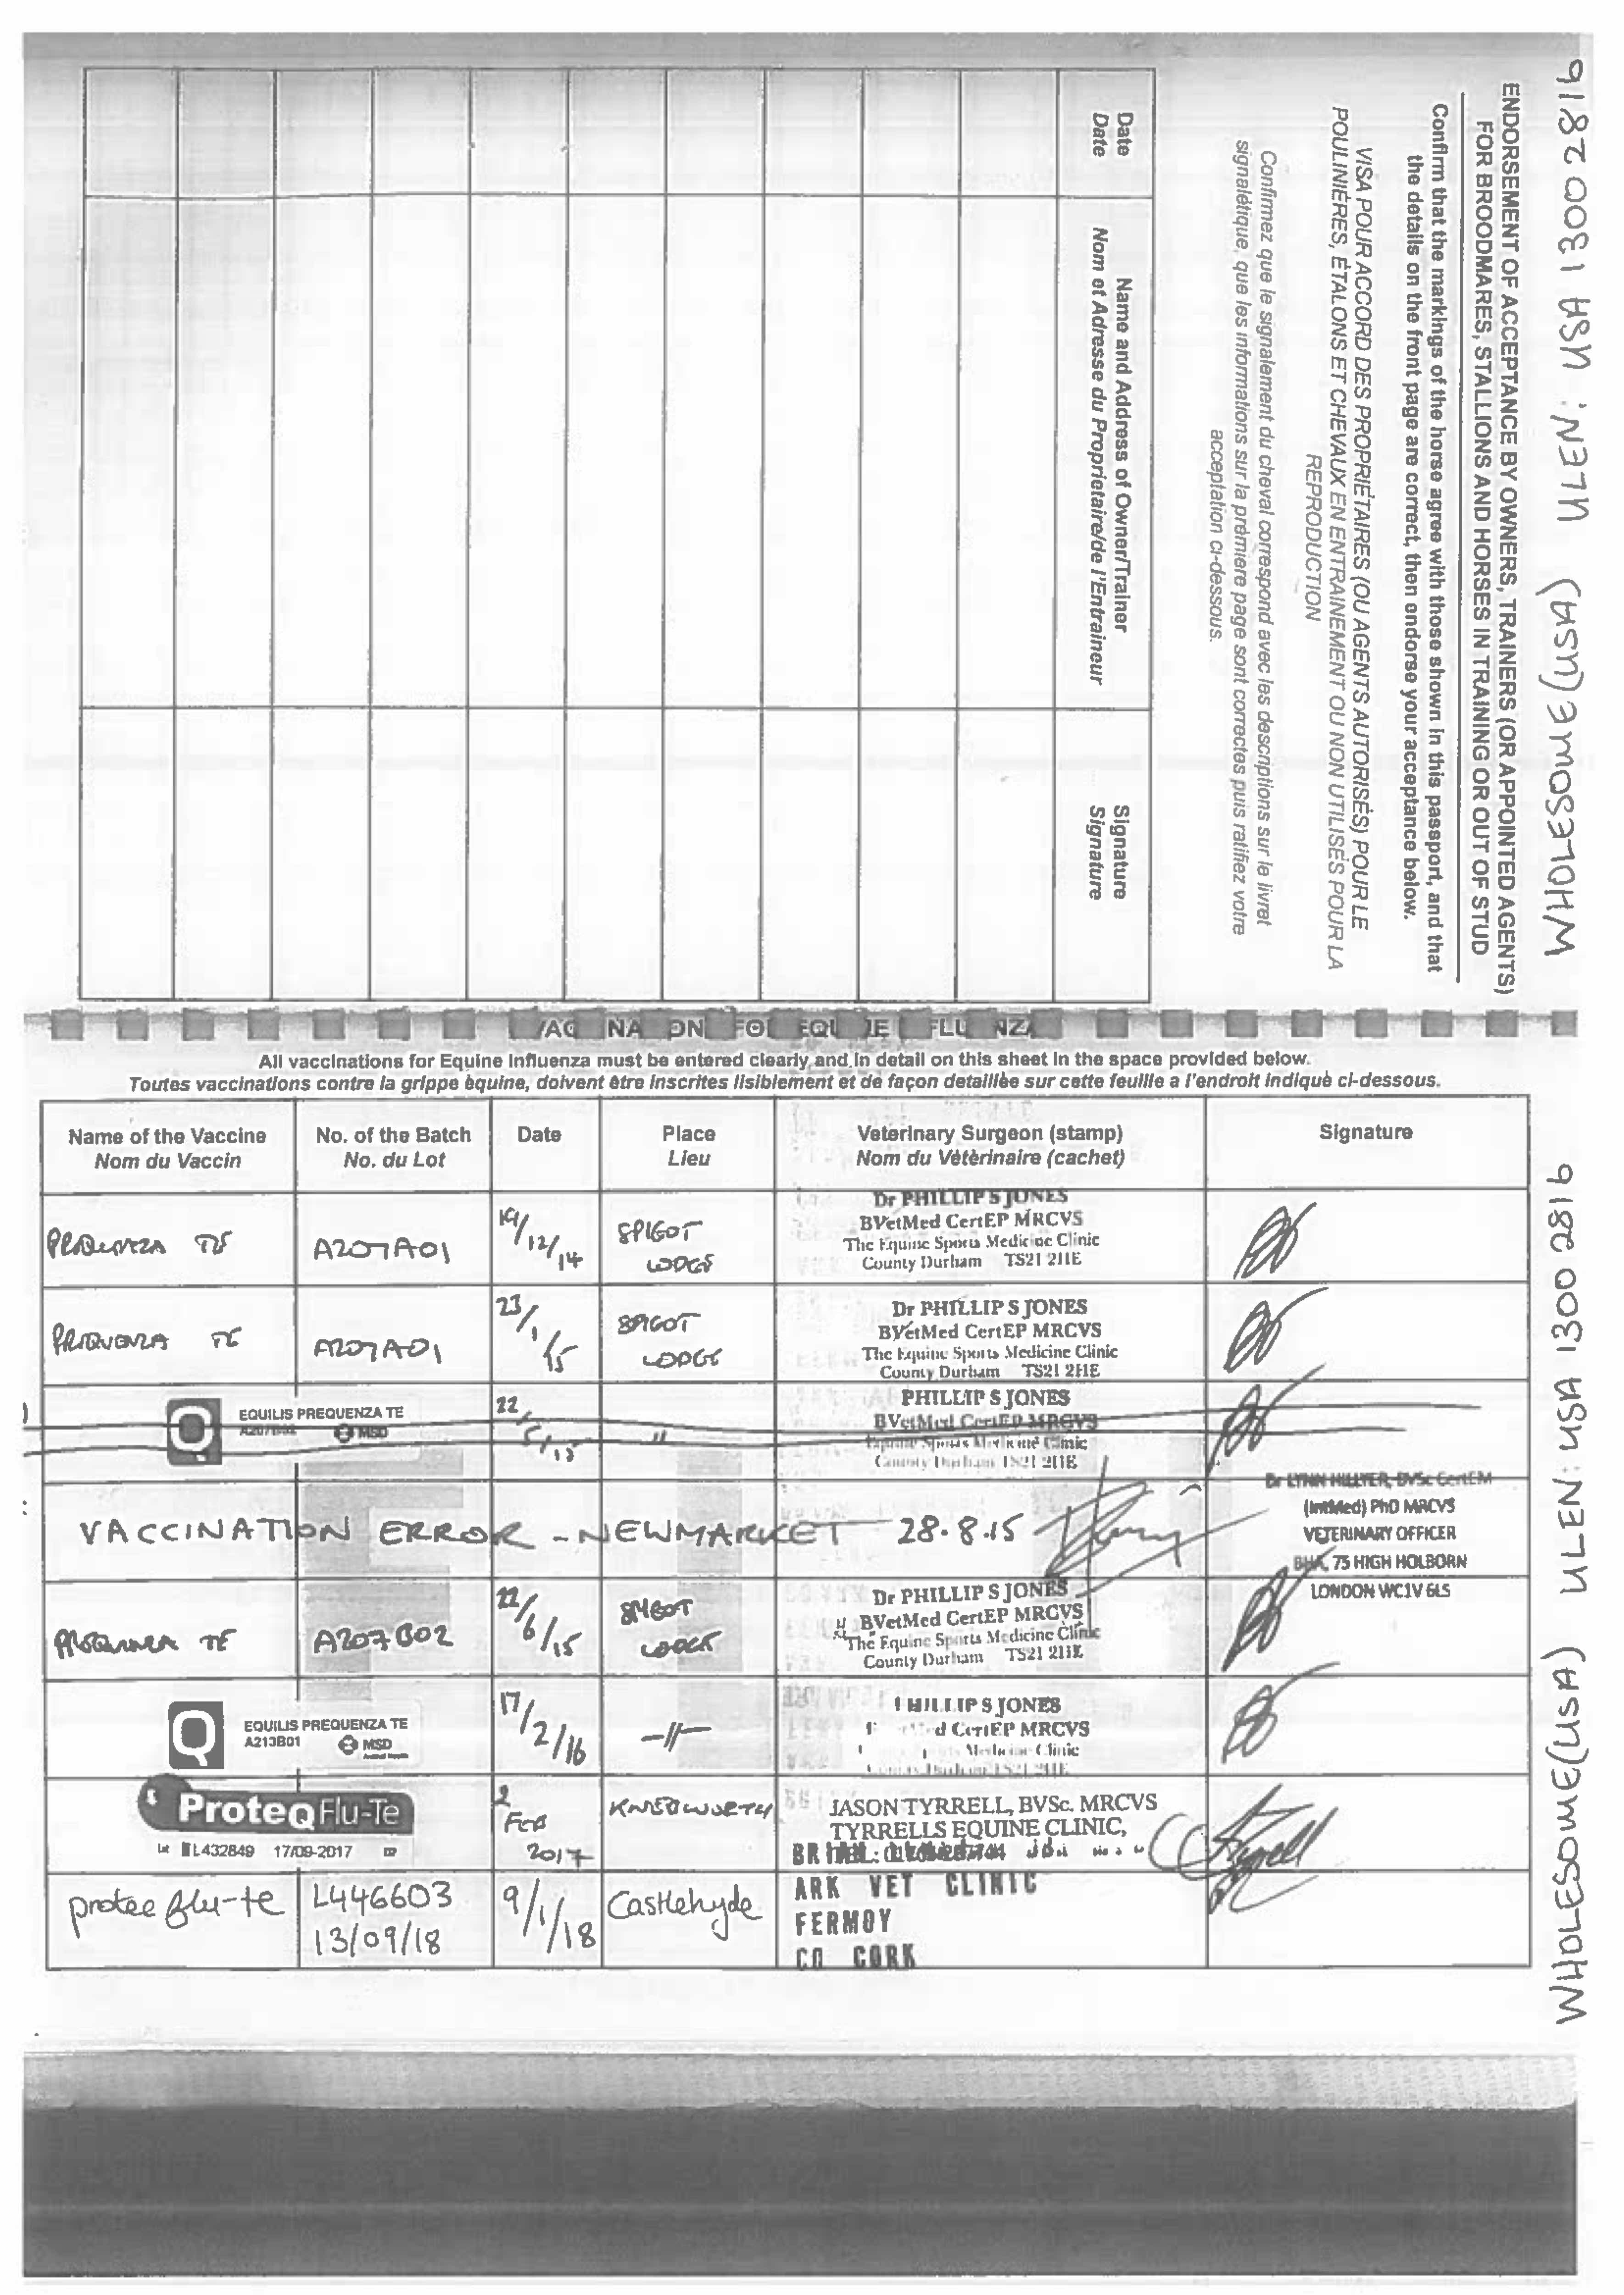 WHOLESOME(USA) ULEN: USA 13002816
ENDORSEMENT OF ACCEPTANCE BY OWNERS, TRAINERS (OR APPOINTED AGENTS)
FOR BROODMARES, STALLIONS AND HORSES IN TRAINING OR OUT OF STUD
Confirm that the markings of the horse agree with those shown in this passport, and that
the details on the front page are correct, then endorse your acceptance below.
VISA POUR ACCORD DES PROPRIÉTAIRES (OU AGENTS AUTORISÉS) POUR LE
POULINIÈRES, ÉTALONS ET CHEVAUX EN ENTRAINEMENT OU NON UTILISÉS POUR LA
REPRODUCTION
Confirmez que le signalement du cheval correspond avec les descriptions sur le livret
signalétique, que les informations sur la première page sont correctes puis ratifiez votre
acceptation ci-dessous.
Date
Date
Name and Address of Owner/Trainer
Nom et Adresse du Proprietaire/de l'Entraineur
Signature
Signature
All vaccinations for Equine Influenza must be entered clearly and in detail on this sheet in the space provided below.
Toutes vaccinations contre la grippe èquine, doivent être inscrites lisiblement et de façon detaillèe sur cette feuille a l'endroit indiquè ci-dessous.
Name of the Vaccine
Nom du Vaccin
No. of the Batch
No. du Lot
Date
Place
Lieu
Veterinary Surgeon (stamp)
Nom du Vètèrinaire (cachet)
Signature
TE A207A01 19/12/14 SPIGOT LODGE
Dr PHILLIP S JONES
BVetMed CertEP MRCVS
The Equine Sports Medicine Clinic
County Durham TS21 2HE
TE A207A01 23/1/15 SPIGOT LODGE
Dr PHILLIP S JONES
BVetMed CertEP MRCVS
The Equine Sports Medicine Clinic
County Durham TS21 2HE
EQUILIS PREQUENZA TE
MSD
22/5/15 "
PHILLIP S JONES
BVetMed CertEP MRCVS
Equine Sports Medicine Clinic
County Durham TS21 2HE
VACCINATION ERROR - NEWMARKET 28.8.15
Dr LYNN HILLYER, BVSc CertEM
(IntMed) PhD MRCVS
VETERINARY OFFICER
BHA, 75 HIGH HOLBORN
LONDON WC1V 6LS
TE A207B02 22/6/15 SPIGOT LODGE
Dr PHILLIP S JONES
BVetMed CertEP MRCVS
The Equine Sports Medicine Clinic
County Durham TS21 2HE
Q EQUILIS PREQUENZA TE
A213B01 MSD
17/2/16 -"-
PHILLIP S JONES
CertEP MRCVS
Medicine Clinic
ProteqFlu-Te
L432849 17/09-2017
2 FEB 2017
KNEBWORTH
JASON TYRRELL, BVSc. MRCVS
TYRRELLS EQUINE CLINIC,
protec flu-te L446603 13/09/18 9/1/18 Castlehyde
ARK VET CLINIC
FERMOY
CO CORK
WHOLESOME(USA) ULEN: USA 13002816